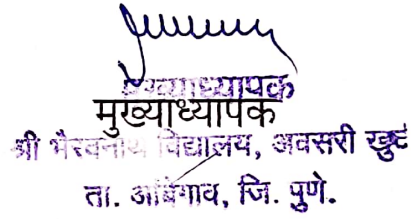 मुख्याध्यापक
मुख्याध्यापक
श्री भैरवनाथ विद्यालय, अवसरी खुर्द
ता. आंबेगाव, जि. पुणे.